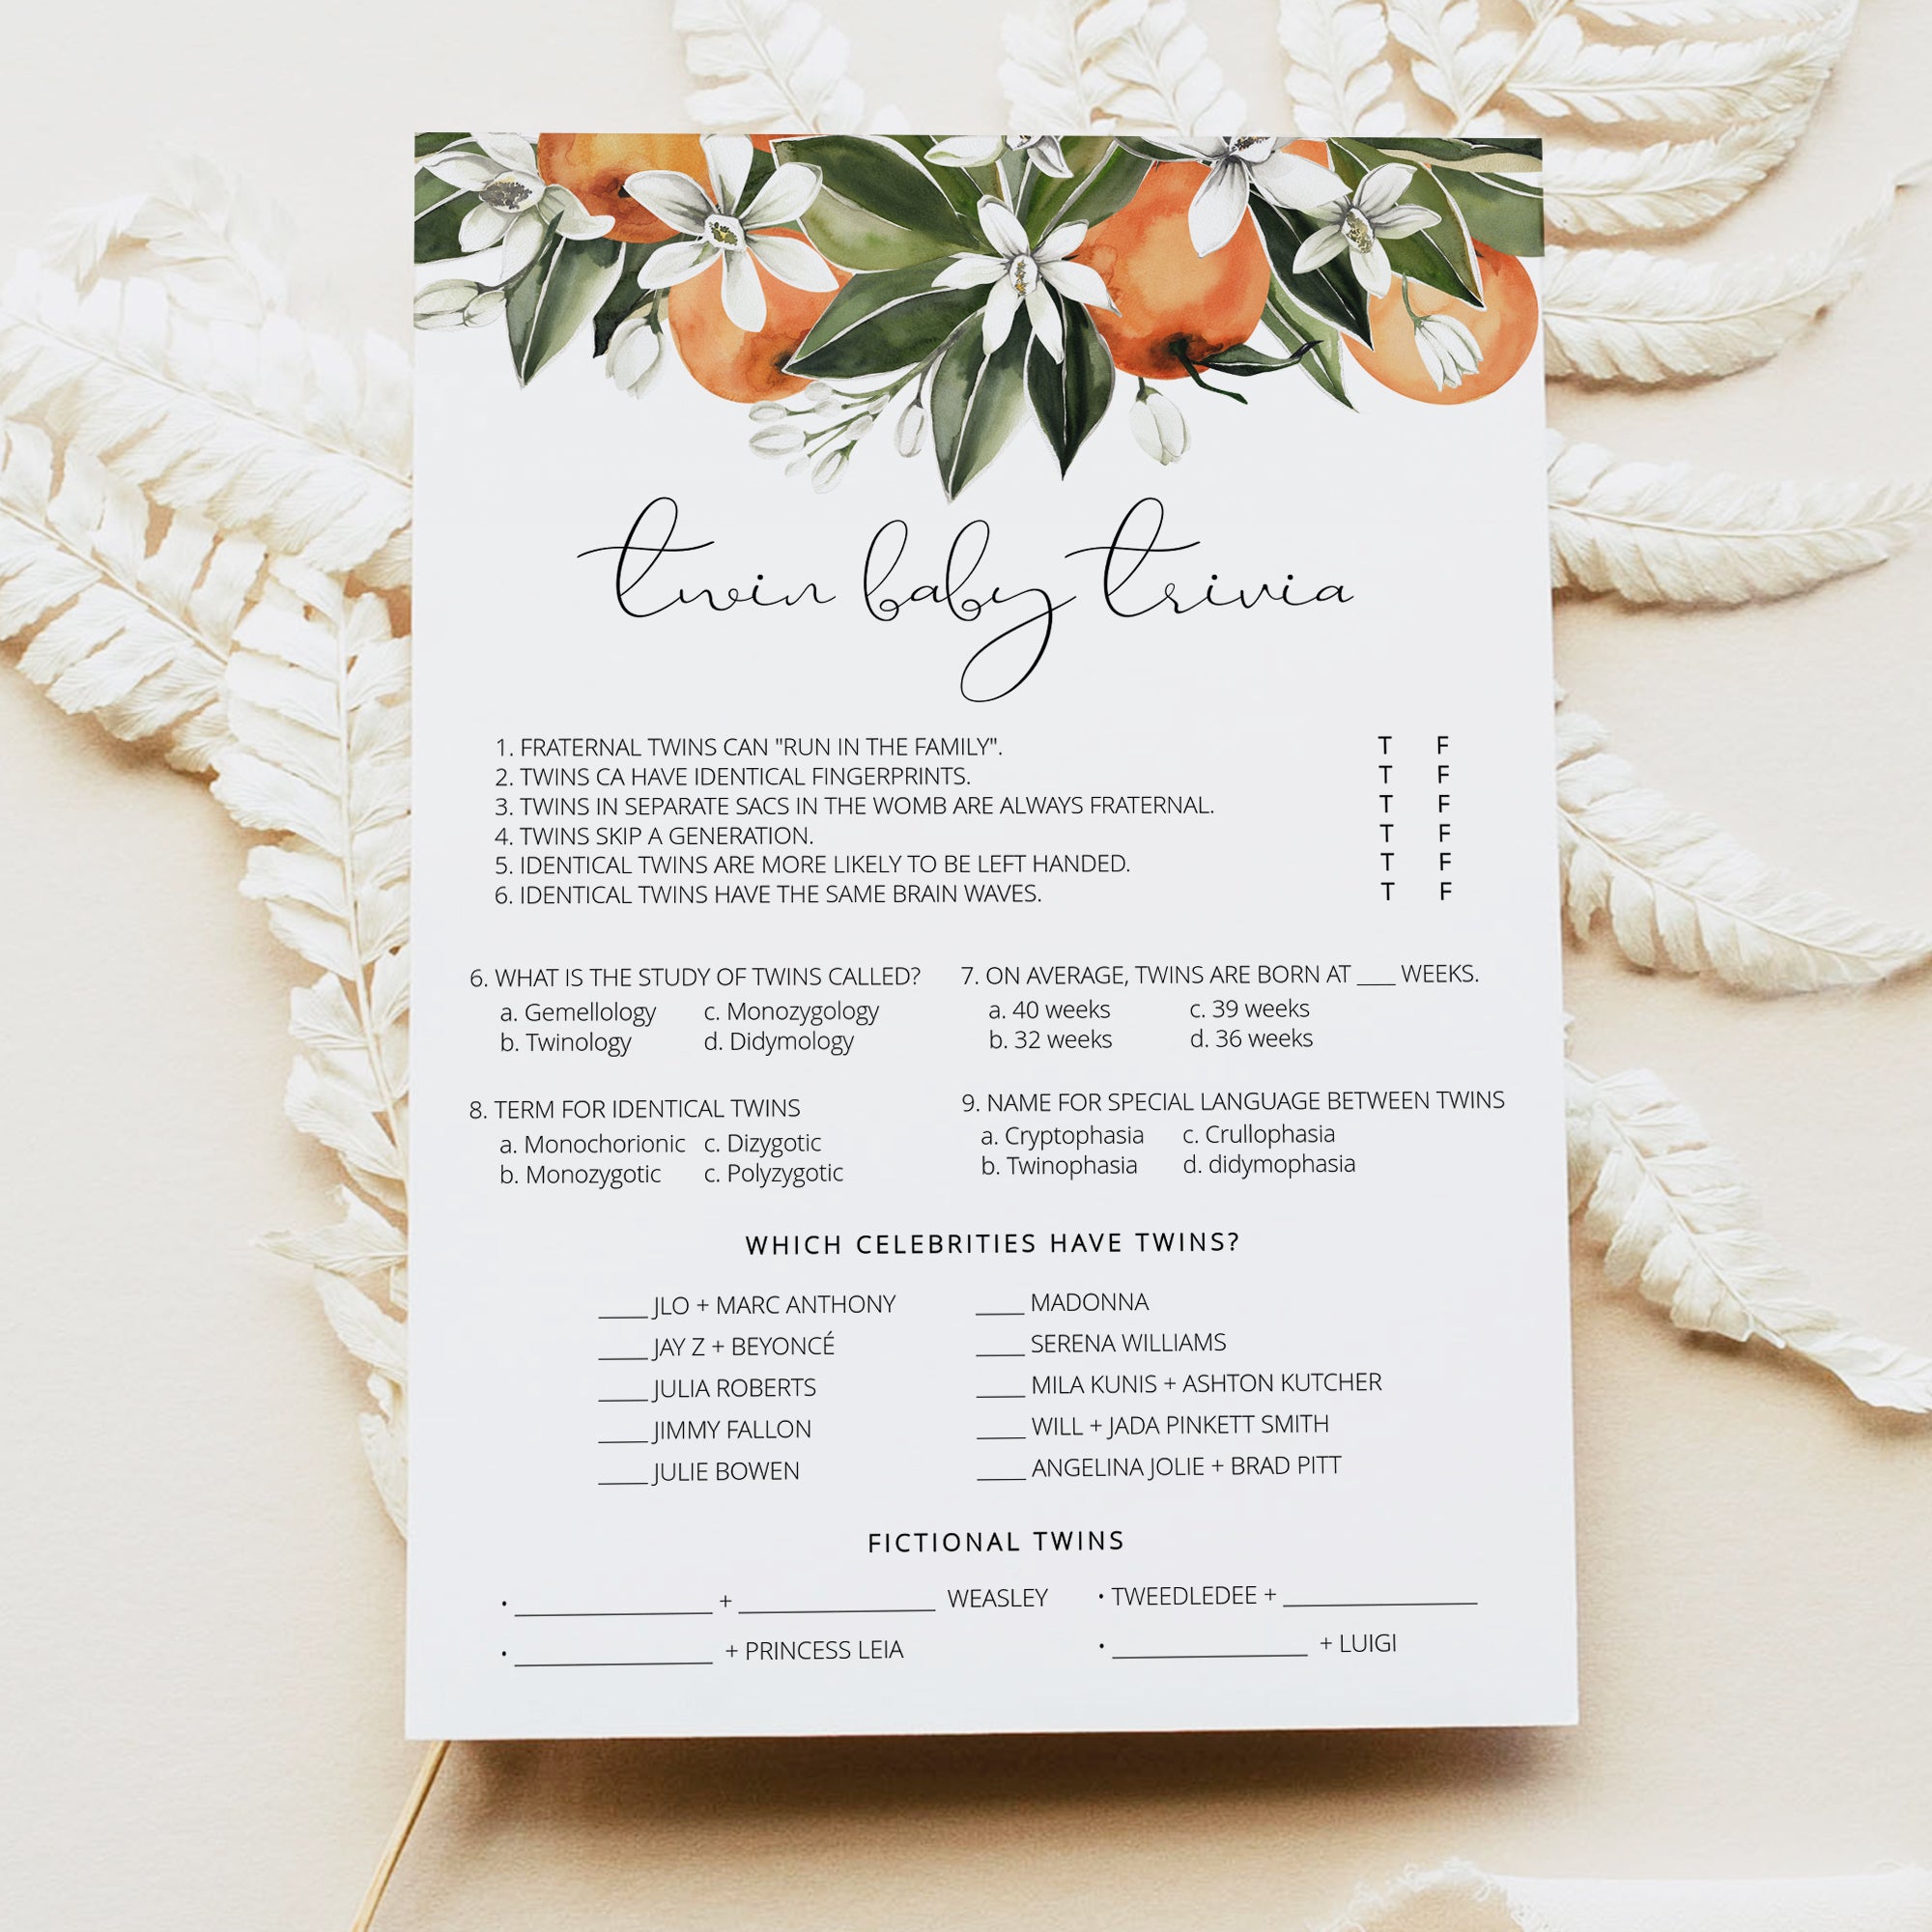 twin baby trivia
1. FRATERNAL TWINS CAN "RUN IN THE FAMILY". T F
2. TWINS CA HAVE IDENTICAL FINGERPRINTS. T F
3. TWINS IN SEPARATE SACS IN THE WOMB ARE ALWAYS FRATERNAL. T F
4. TWINS SKIP A GENERATION. T F
5. IDENTICAL TWINS ARE MORE LIKELY TO BE LEFT HANDED. T F
6. IDENTICAL TWINS HAVE THE SAME BRAIN WAVES. T F
6. WHAT IS THE STUDY OF TWINS CALLED?
a. Gemellology c. Monozygology
b. Twinology d. Didymology
7. ON AVERAGE, TWINS ARE BORN AT ___ WEEKS.
a. 40 weeks c. 39 weeks
b. 32 weeks d. 36 weeks
8. TERM FOR IDENTICAL TWINS
a. Monochorionic c. Dizygotic
b. Monozygotic c. Polyzygotic
9. NAME FOR SPECIAL LANGUAGE BETWEEN TWINS
a. Cryptophasia c. Crullophasia
b. Twinophasia d. didymophasia
WHICH CELEBRITIES HAVE TWINS?
____ JLO + MARC ANTHONY ____ MADONNA
____ JAY Z + BEYONCÉ ____ SERENA WILLIAMS
____ JULIA ROBERTS ____ MILA KUNIS + ASHTON KUTCHER
____ JIMMY FALLON ____ WILL + JADA PINKETT SMITH
____ JULIE BOWEN ____ ANGELINA JOLIE + BRAD PITT
FICTIONAL TWINS
• ________________ + ________________ WEASLEY • TWEEDLEDEE + ________________
• ________________ + PRINCESS LEIA • ________________ + LUIGI